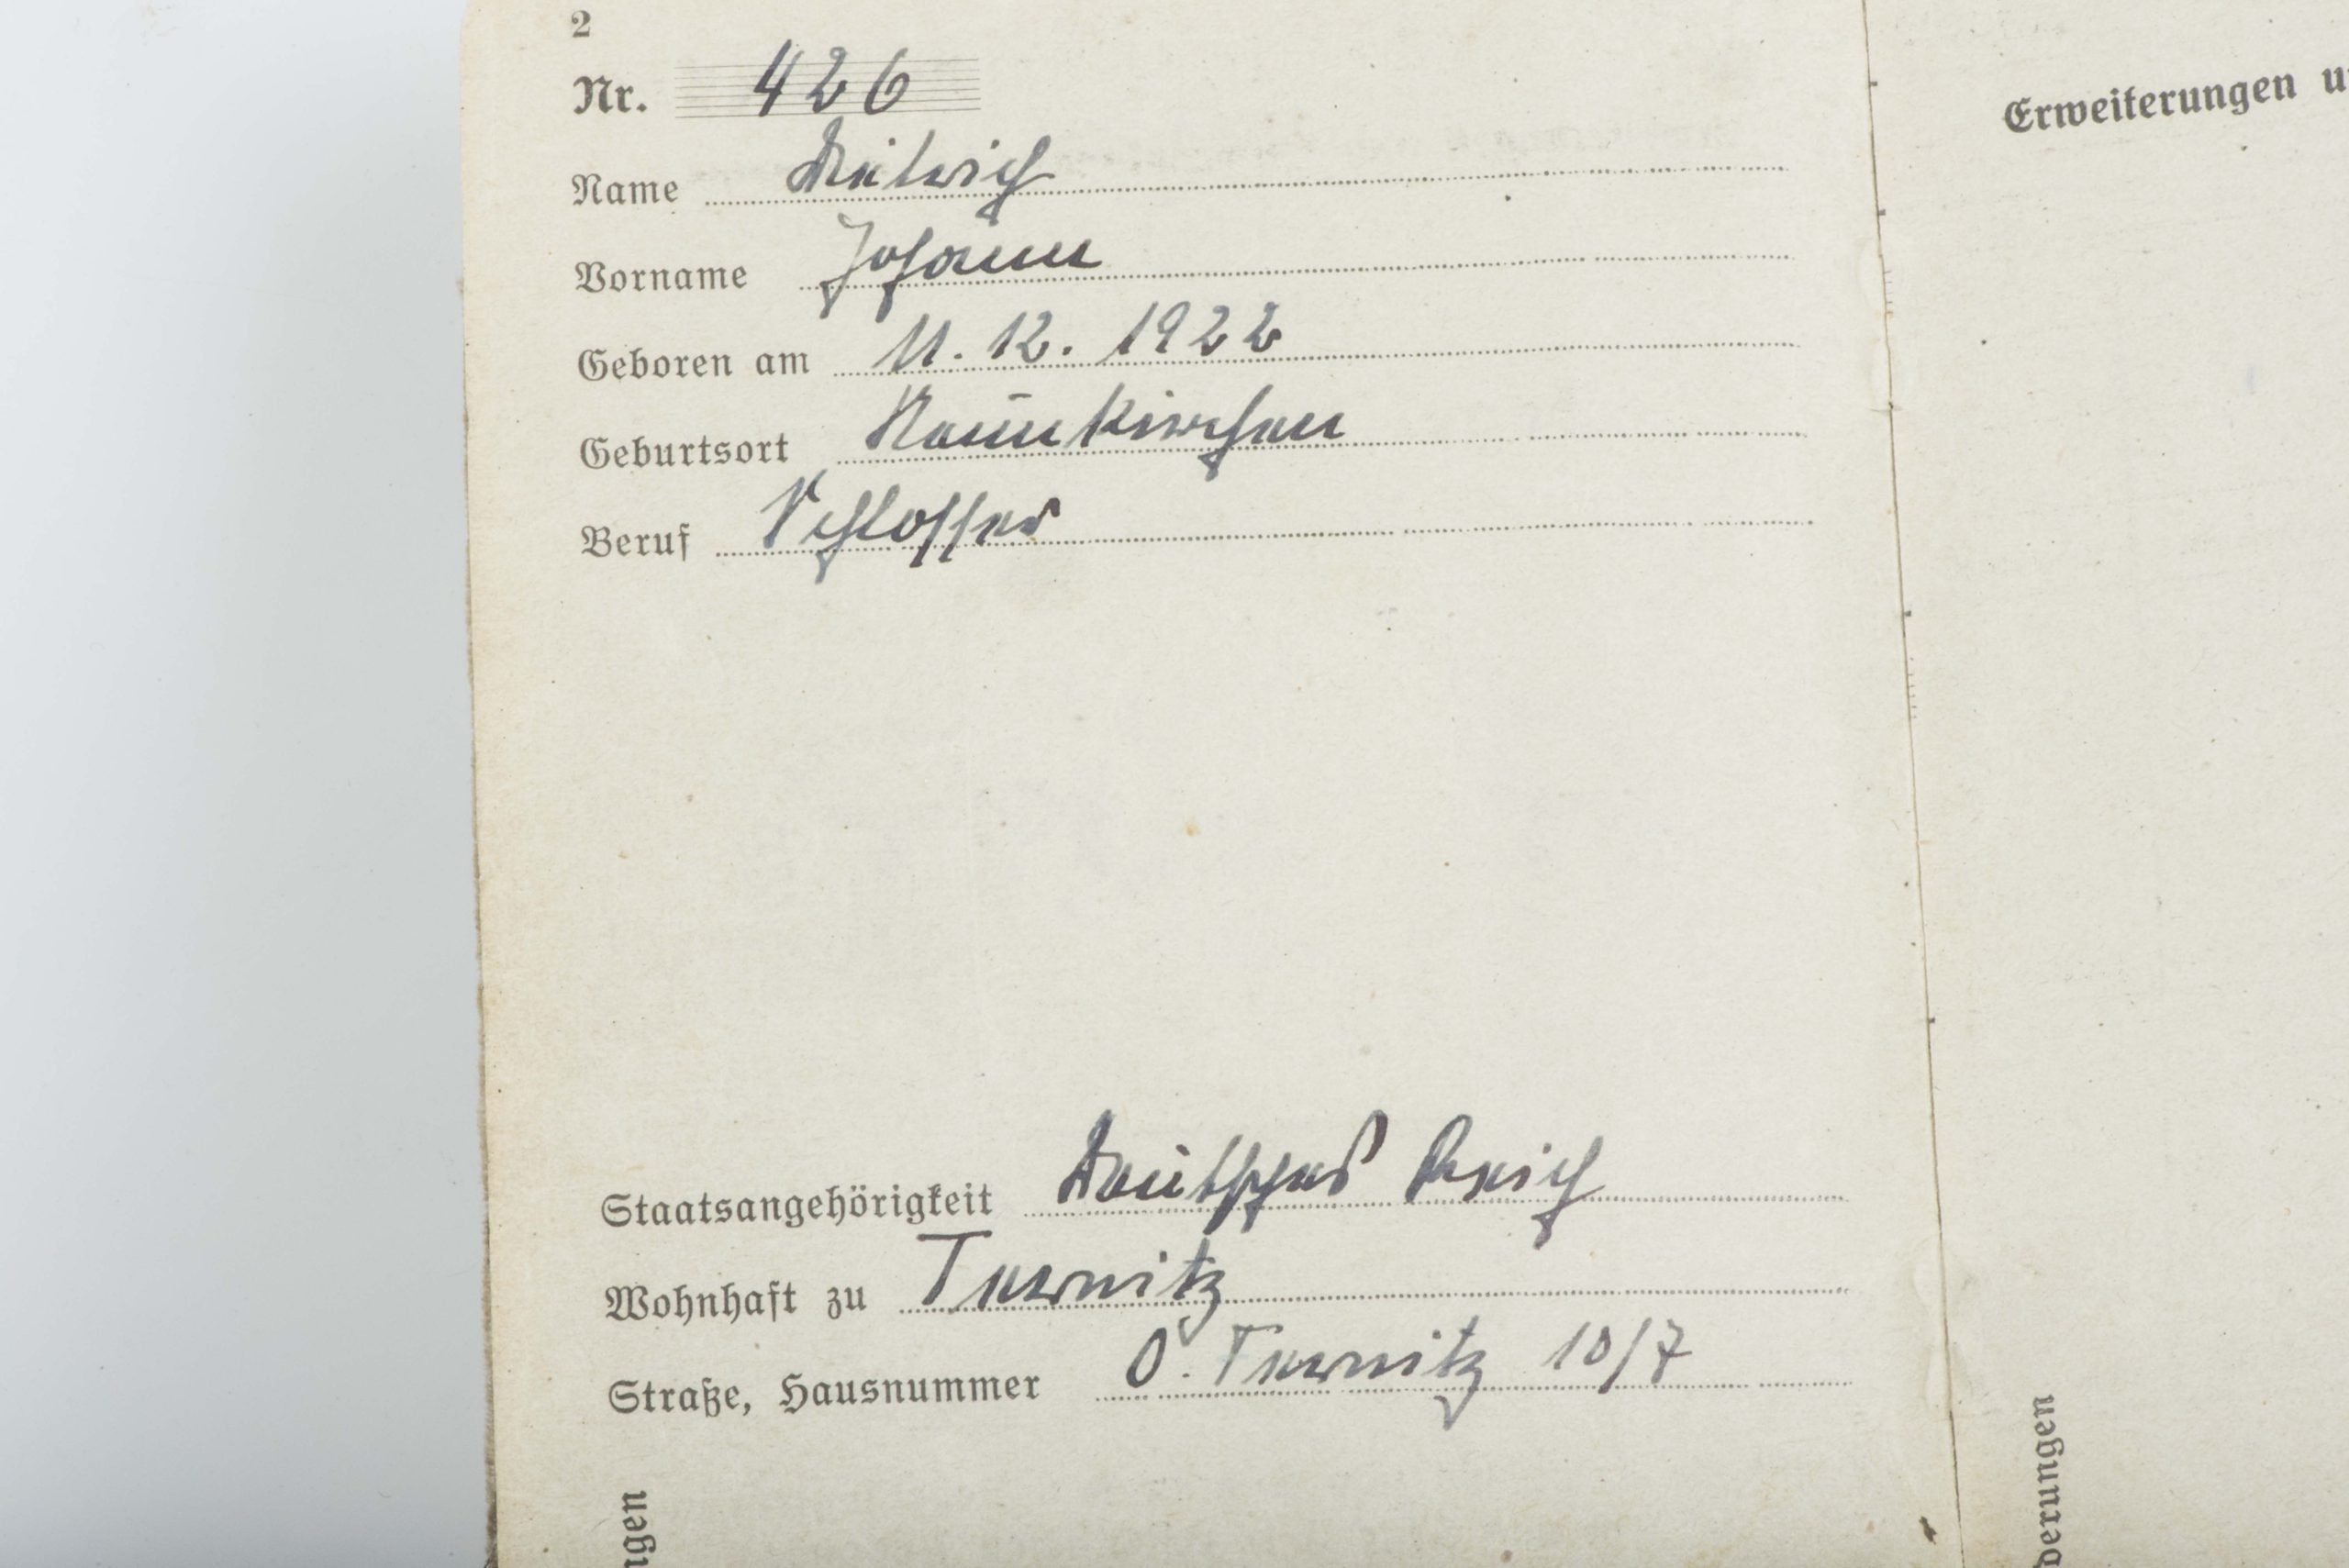 2
Nr. 426
Name
Vorname Johann
Geboren am 11. 12. 1922
Geburtsort Neunkirchen
Beruf Schlosser
Staatsangehörigkeit Deutsches Reich
Wohnhaft zu Ternitz
Straße, Hausnummer O. Ternitz 10/7
ngen
Erweiterungen u
derungen